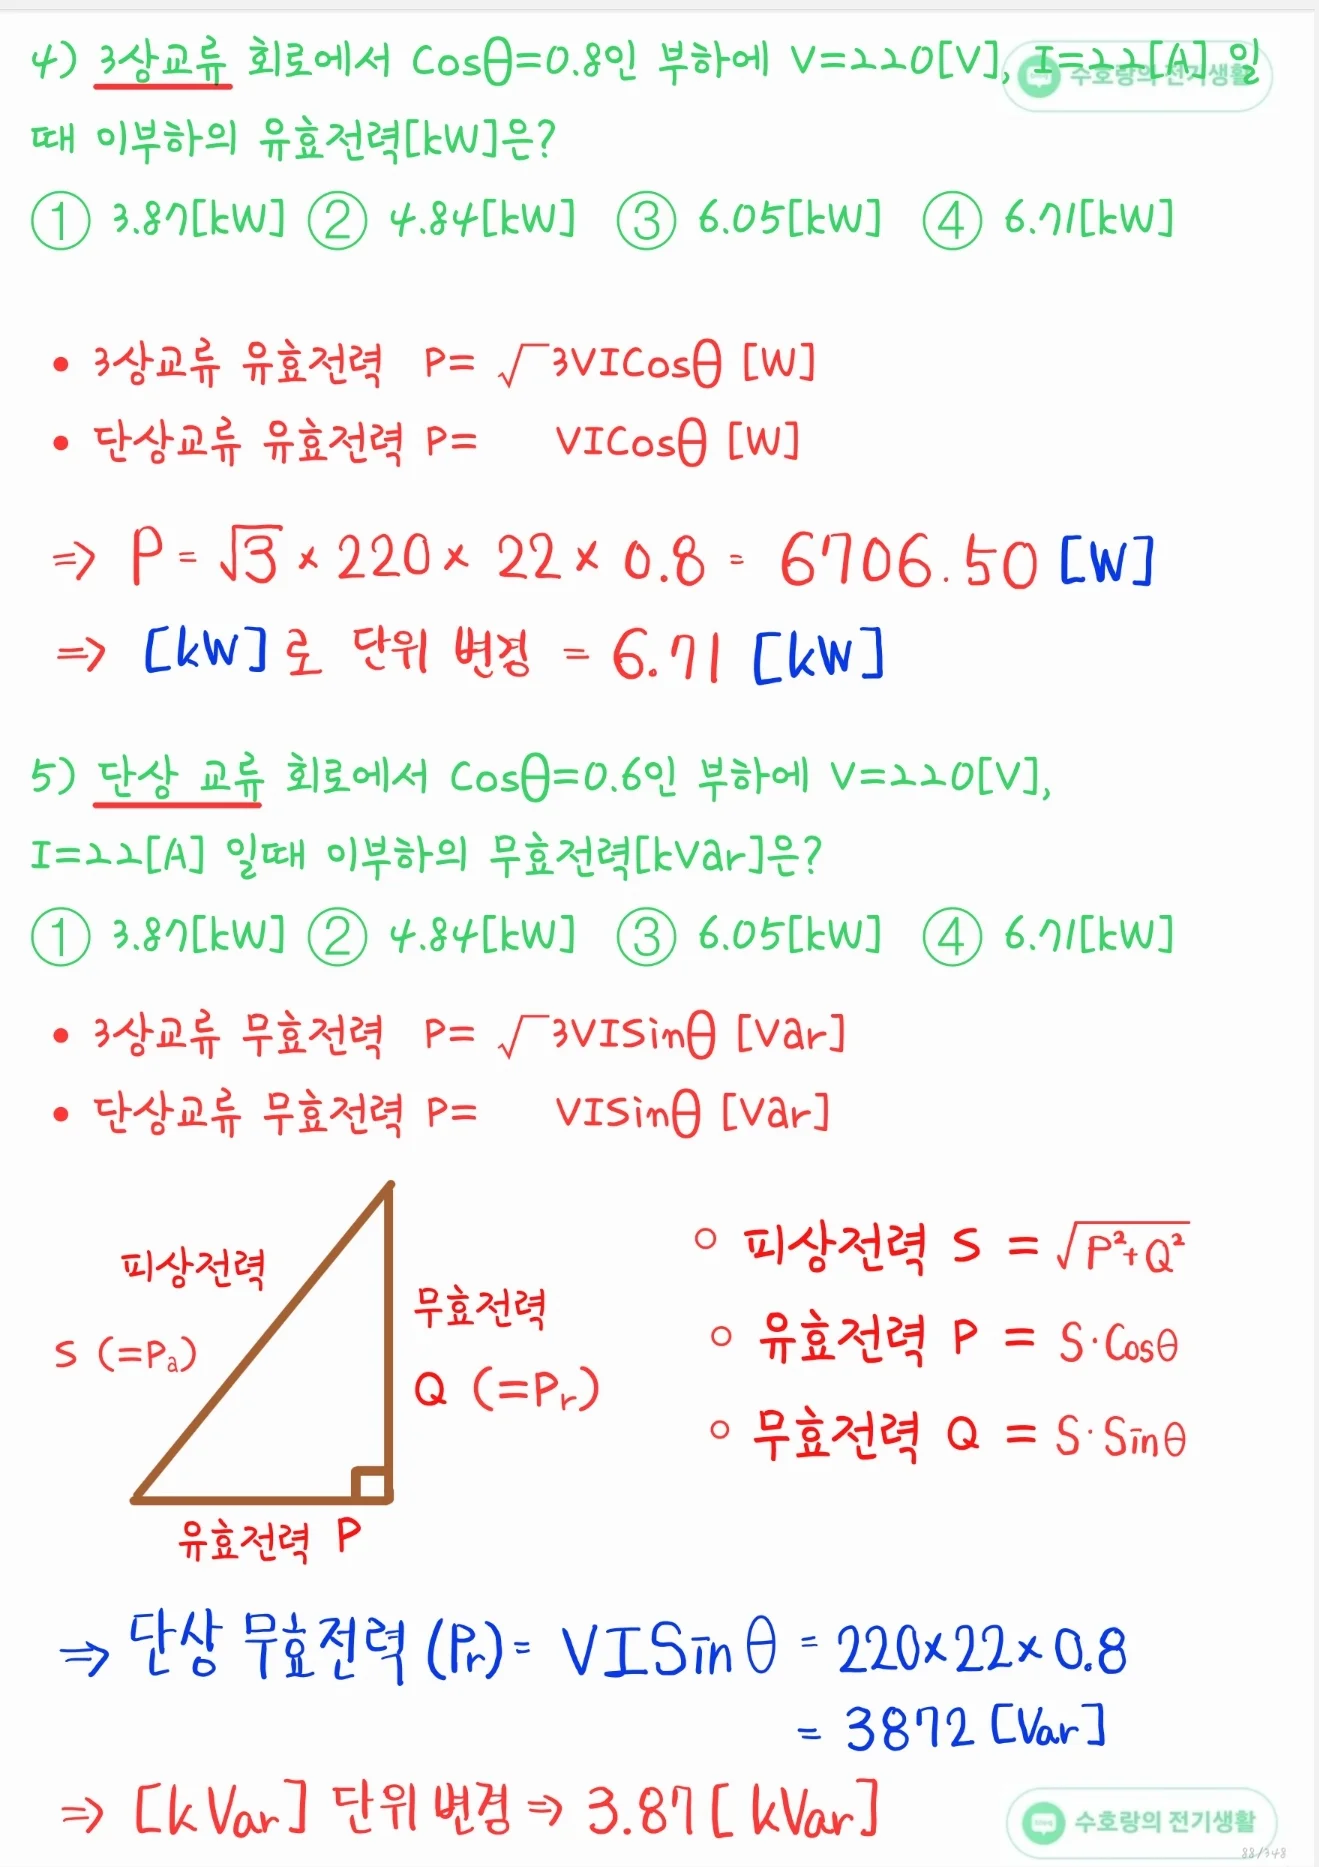 4) 3상교류 회로에서 Cosθ=0.8인 부하에 V=220[V], I=22[A] 일
수호랑의 전기생활
때 이부하의 유효전력[kW]은?
① 3.87[kW] ② 4.84[kW] ③ 6.05[kW] ④ 6.71[kW]
• 3상교류 유효전력 P= √3VICosθ [W]
• 단상교류 유효전력 P= VICosθ [W]
⇒ P = √3 × 220 × 22 × 0.8 = 6706.50 [W]
⇒ [kW]로 단위 변경 = 6.71 [kW]
5) 단상 교류 회로에서 Cosθ=0.6인 부하에 V=220[V],
I=22[A] 일때 이부하의 무효전력[kVar]은?
① 3.87[kW] ② 4.84[kW] ③ 6.05[kW] ④ 6.71[kW]
• 3상교류 무효전력 P= √3VISinθ [Var]
• 단상교류 무효전력 P= VISinθ [Var]
피상전력
S (=Pa)
무효전력
Q (=Pr)
유효전력 P
○ 피상전력 S = √P²+Q²
○ 유효전력 P = S·Cosθ
○ 무효전력 Q = S·Sinθ
⇒ 단상 무효전력 (Pr) = VISinθ = 220×22×0.8
= 3872 [Var]
⇒ [kVar] 단위 변경 ⇒ 3.87 [kVar]
수호랑의 전기생활
88/348